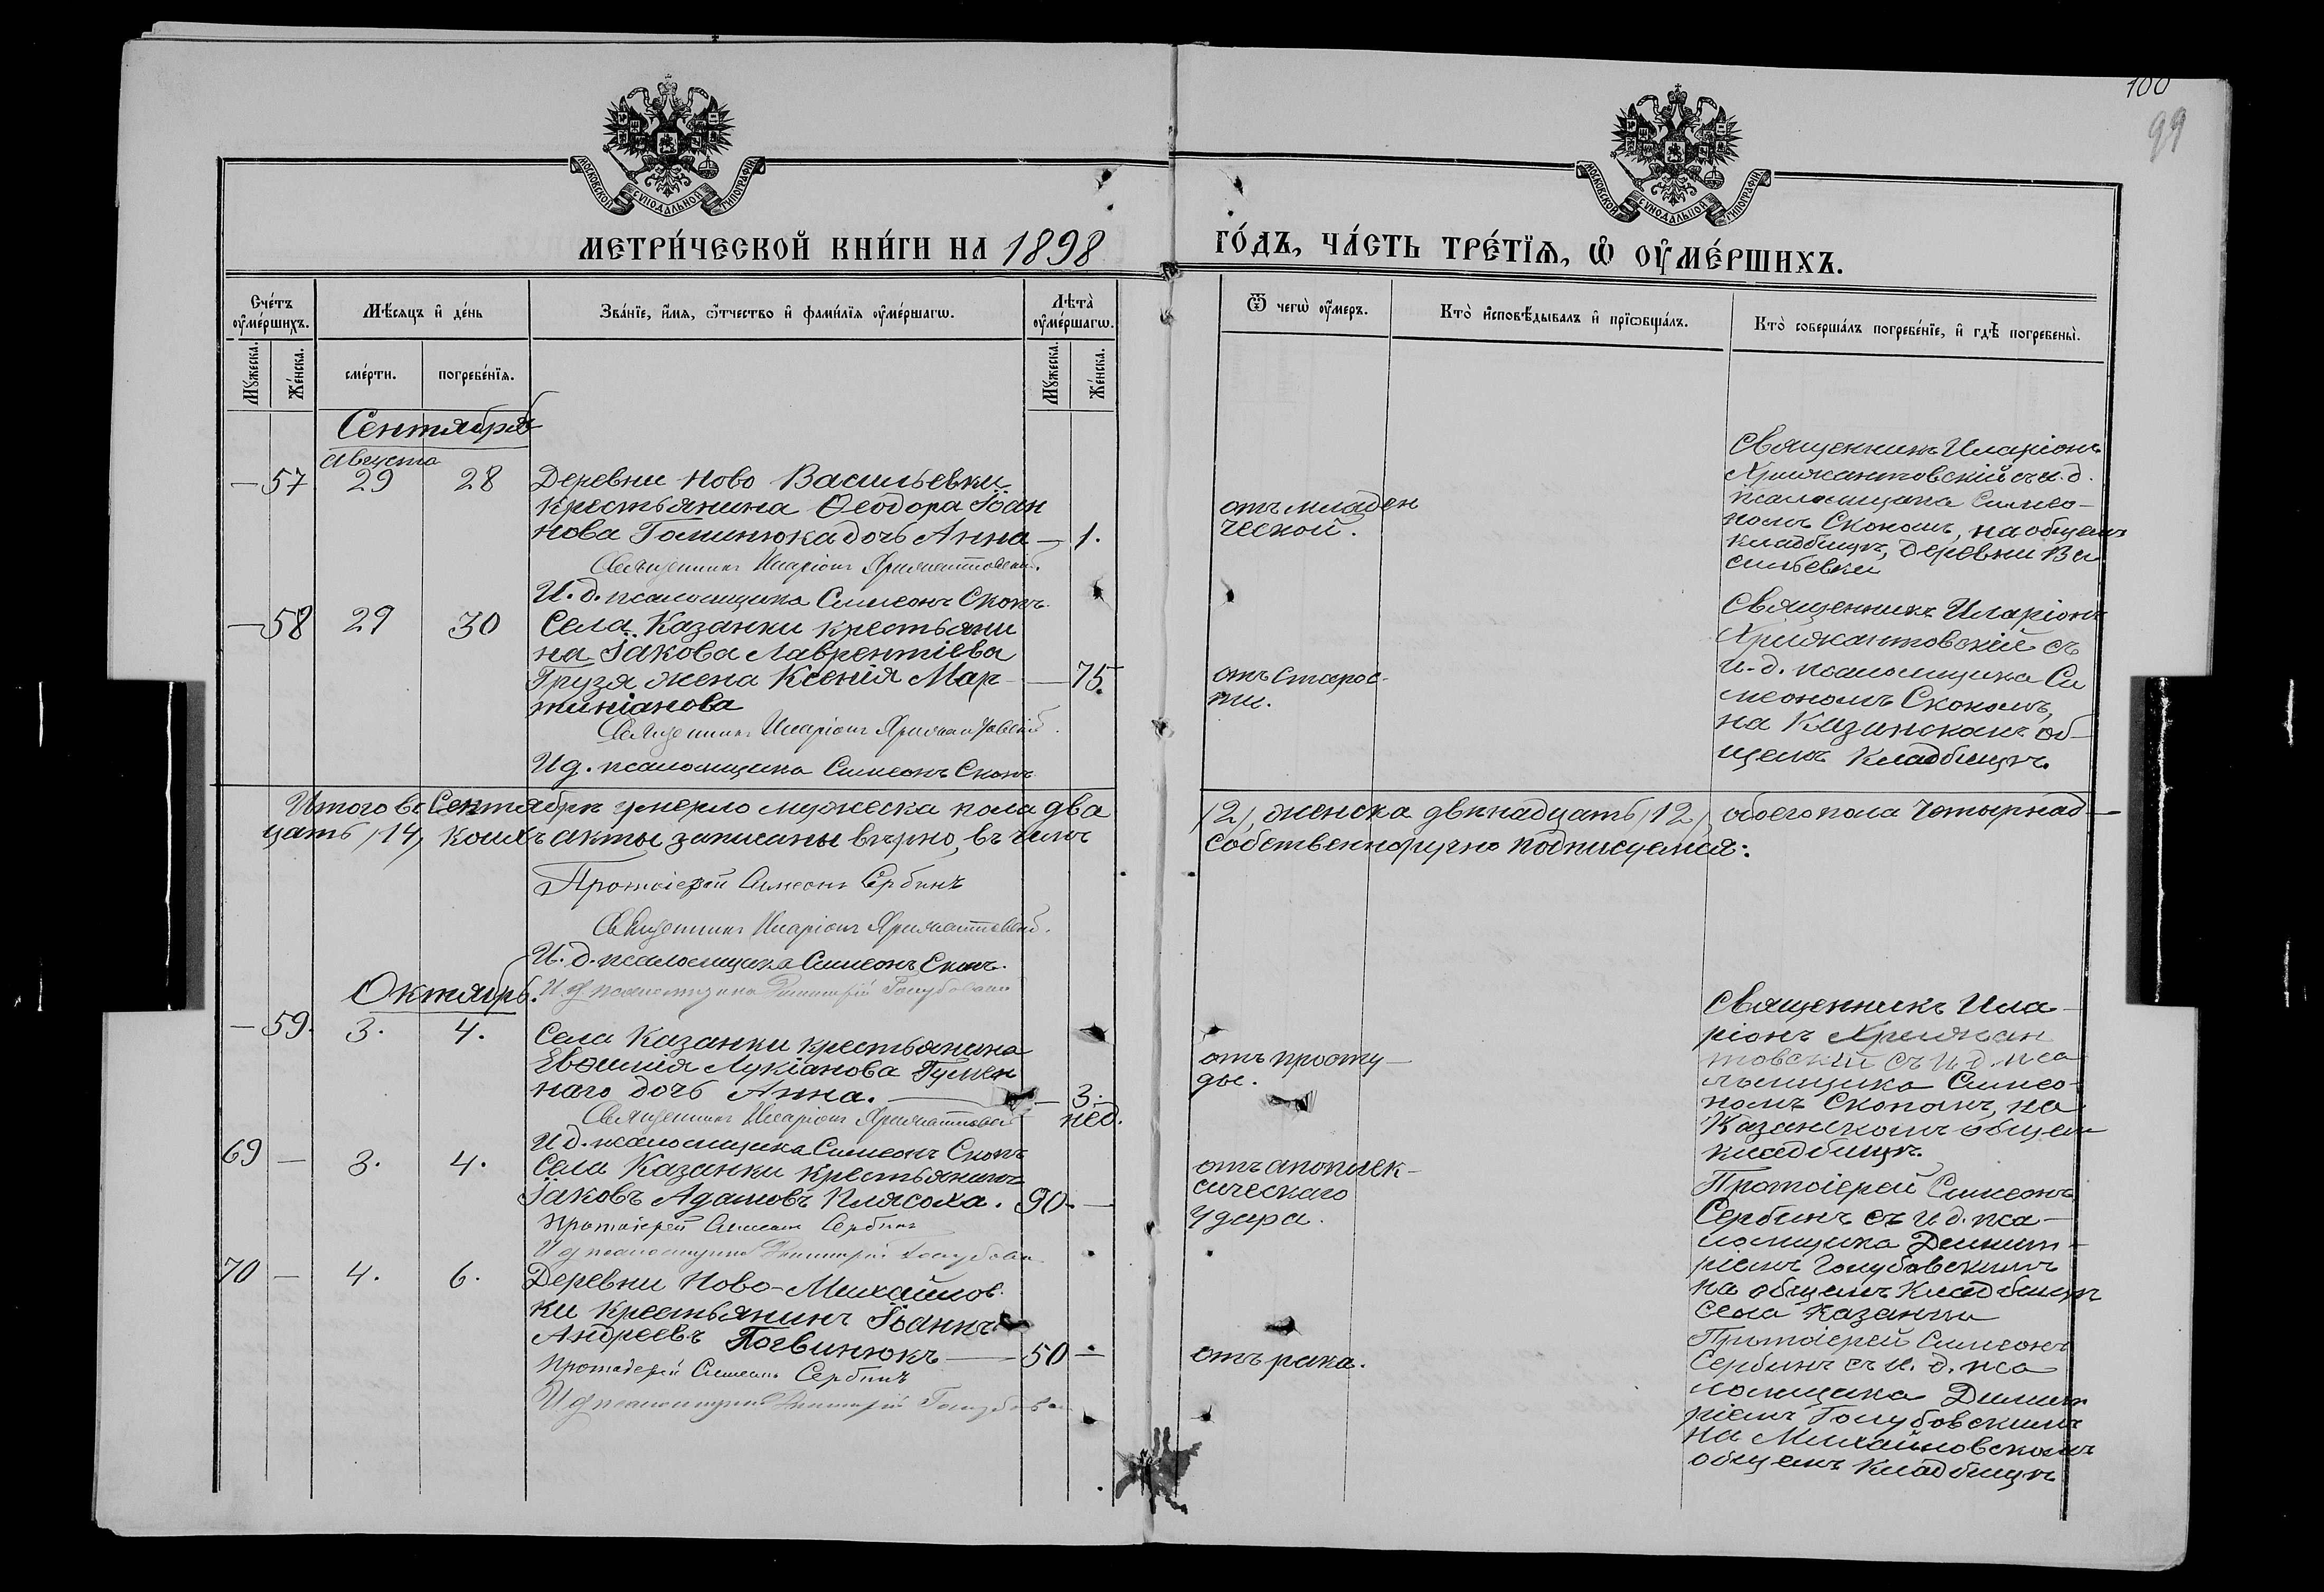 100
99
МОСКОВСКОЙ СѴНОДАЛЬНОЙ ТИПОГРАФІИ
МОСКОВСКОЙ СѴНОДАЛЬНОЙ ТИПОГРАФІИ
МЕТРИ́ЧЕСКОЙ КНИ́ГИ НА 1898
ГО́ДЪ, ЧА́СТЬ ТРЕ́ТЇѦ, Ѡ҆ ОУ҆МЕ́РШИХЪ.
Сче́тъ
оу҆ме́ршихъ.
Мѣ́сяцъ и҆ де́нь
Зва́нїе, и҆́мѧ, ѻ҆́тчество и҆ фами́лїѧ оу҆ме́ршагѡ.
Лѣта̀
оу҆ме́ршагѡ.
Ѿ чегѡ̀ оу҆́меръ.
Кто̀ и҆сповѣ́дывалъ и҆ прїѡбща́лъ.
Кто̀ соверша́лъ погребе́нїе, и҆ гдѣ̀ погребены̀.
Мꙋ́жеска.
Же́нска.
сме́рти.
погребе́нїѧ.
Мꙋ́жеска.
Же́нска.
Сентябрь
Августа
— 57 29 28 Деревни Ново Васильевки
крестьянина Ѳеодора Іоан
нова Гоминюка дочь Анна — 1.
Священникъ Иларіонъ
И. д. псаломщика Симеонъ Скопъ
отъ младен
ческой.
Священникъ Иларіонъ
съ и. д.
псаломщика Симео-
номъ Скопомъ, на общемъ
кладбищѣ, деревни Ва
сильевки
— 58 29 30 Села Казанки крестьяни
на Іакова Лаврентіева
Грузя жена Ксенія Мар — 75.
тиніанова
Священникъ Иларіонъ
И д. псаломщика Симеонъ Скопъ
отъ старос-
ти.
Священникъ Иларіонъ
съ
и. д. псаломщика Си
меономъ Скопомъ,
на Казанскомъ об-
щемъ кладбищѣ.
Итого въ Сентябрѣ умерло мужеска пола два /2/, женска двѣнадцать /12/, обоего пола четырнад-
цать /14/, коихъ акты записаны вѣрно, въ чемъ собственноручно подписуемся:
Протоіерей Симеонъ Сербинъ
Священникъ Иларіонъ
И. д. псаломщика Симеонъ Скопъ.
И д псаломщика Димитрій Голубовскій
Октябрь.
— 59. 3. 4. Села Казанки крестьянина
Евѳимія Лукіанова Гумен
наго дочь Анна. — 3.
нед.
Священникъ Иларіонъ
И д. псаломщика Симеонъ Скопъ
отъ просту-
ды.
Священникъ Ила-
ріонъ
съ и д. пса
ломщика Симео-
номъ Скопомъ, на
Казанскомъ общем
кладбищѣ.
69 — 3. 4. Села Казанки крестьянинъ
Іаковъ Адамовъ Плясоха. 90 —
Протоіерей Симеонъ Сербинъ
И д псаломщика Димитрій Голубовскій
отъ апоплек-
сическаго
удара.
Протоіерей Симеонъ
Сербинъ съ и д. пса-
ломщика Димит-
ріемъ Голубовскимъ
на общемъ кладбищѣ
села Казанки
70 — 4. 6. Деревни Ново-Михайлов
ки крестьянинъ Іоаннъ
Андреевъ Логвинюкъ — 50 —
Протоіерей Симеонъ Сербинъ
И д псаломщика Димитрій Голубовскій
отъ рака.
Протоіерей Симеонъ
Сербинъ съ и. д. пса
ломщика Димит
ріемъ Голубовскимъ
на Михайловскомъ
общемъ кладбищѣ